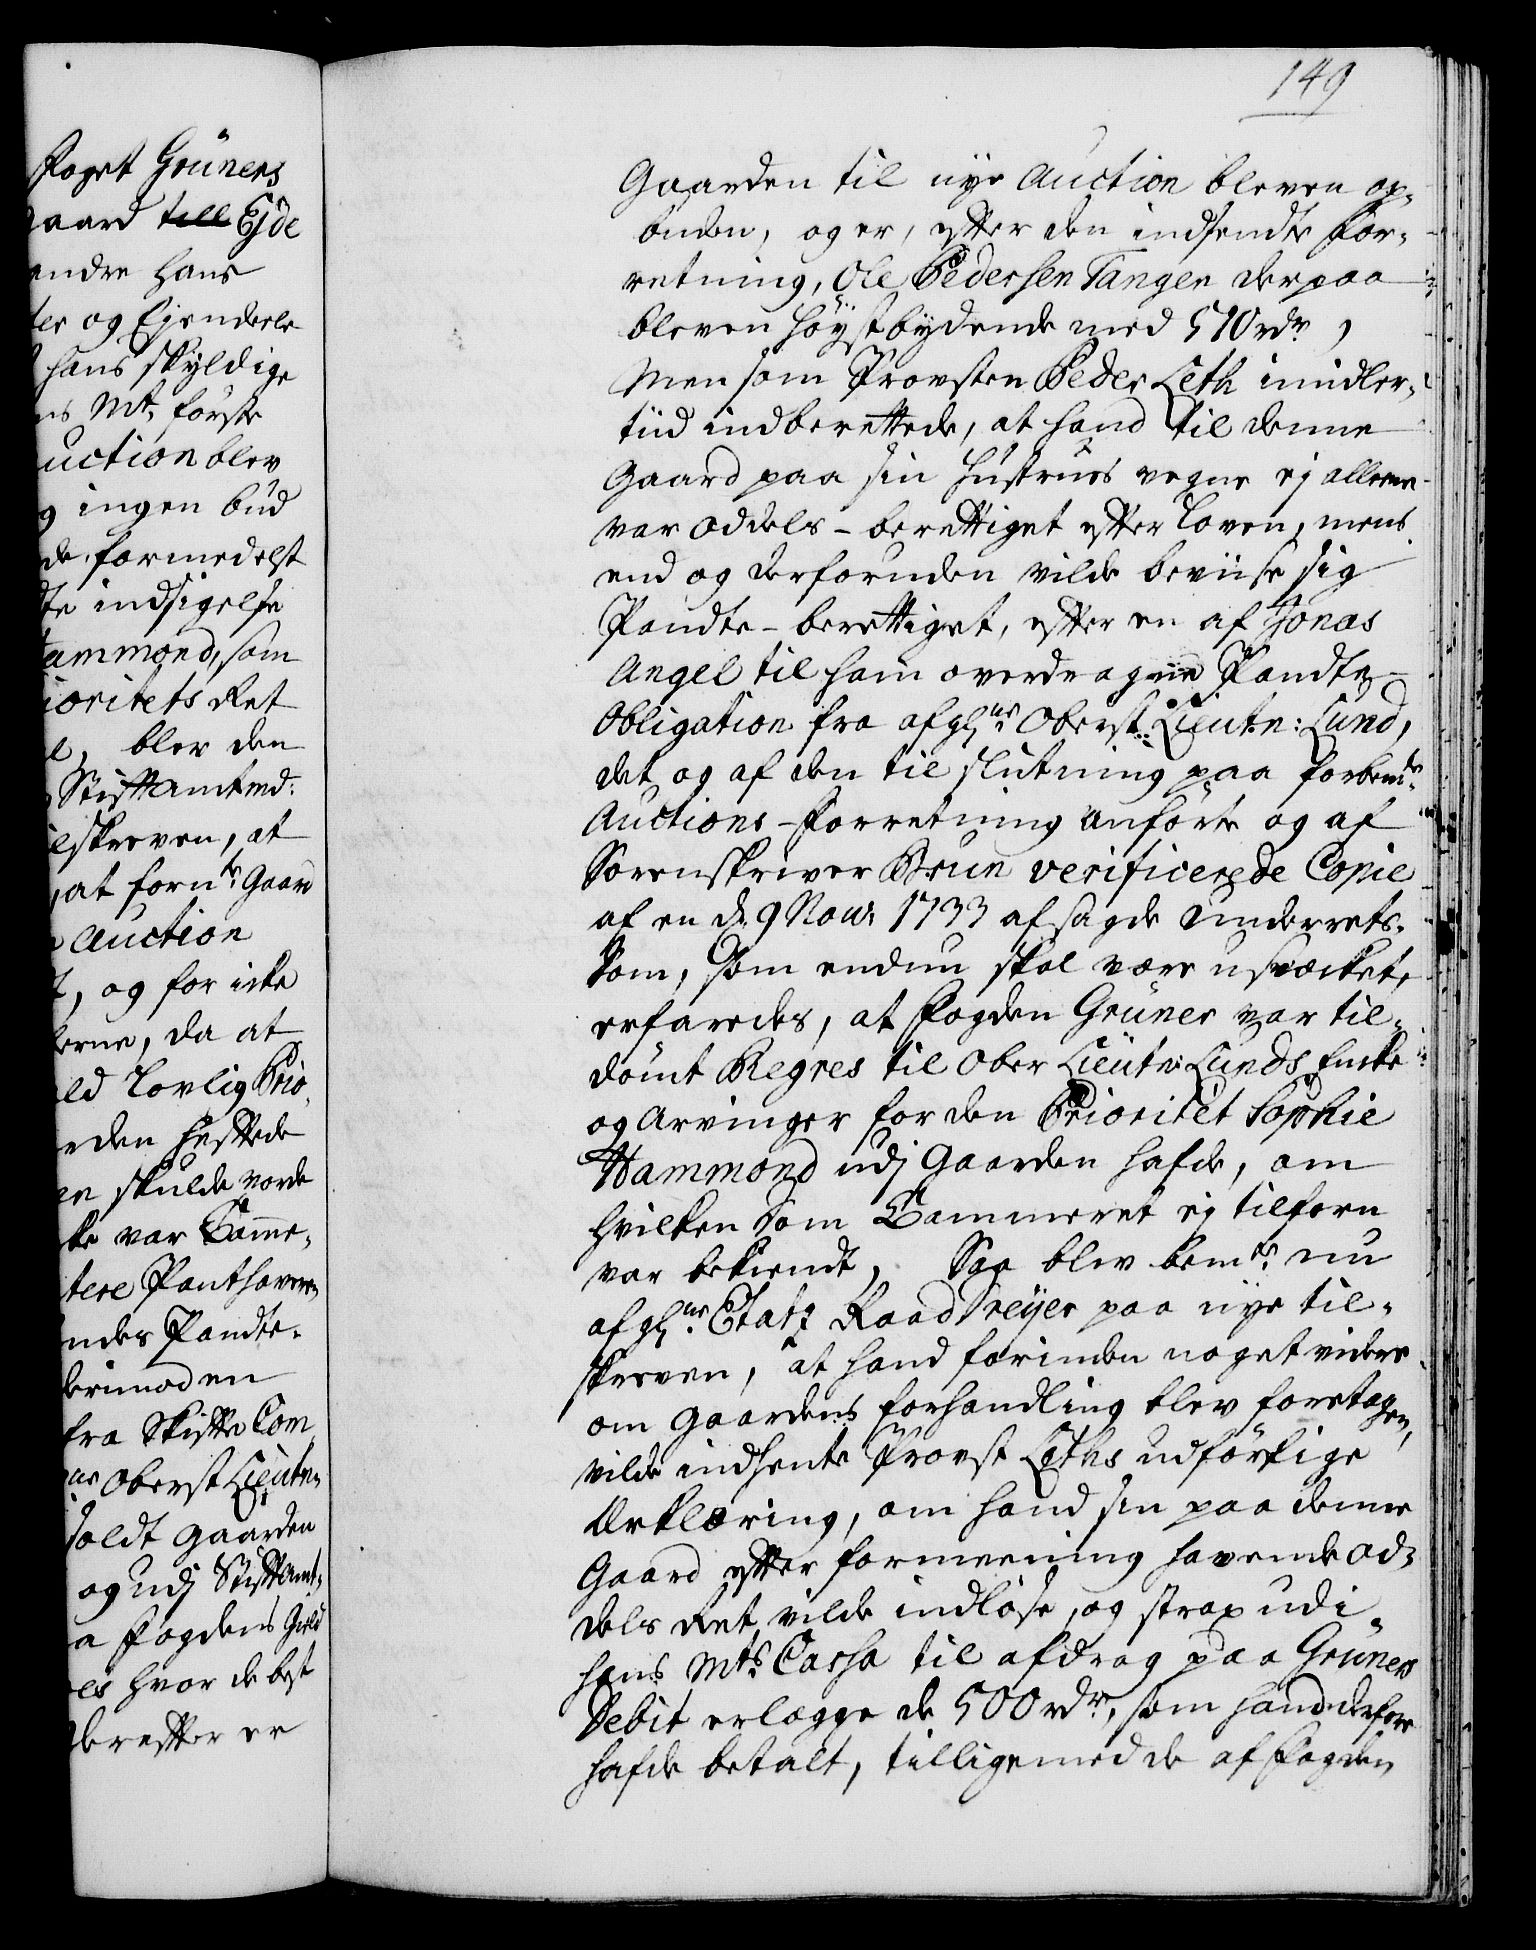 Foget Grüners
gaard till Ejde
andre hans
ter og Ejendeele
hans skyldige
ns Mt. første
uction blev
g ingen bud
de formedelst
te indsigelse
ammond, som
ioritets Ret
e, blev den
Stiftamtmd:
ilskreven, at
, at forn.te Gaard
Auction
t, og for icke
erne, da at
eld Lovlig Prio,
rden heftede
en skulde vorde
ke var Camme,
tere Panthavere,
ndes Pandte,
derimod en
fra Skifte Com
ne Oberst Lieutn:
soldt gaarden
og udj Stiftamt,
a Fogdens Gield
es hvor de best
derefter er
149
Gaarden til nye Auction bleven op,
buden, og er, efter den indsendte For,
retning, Ole Pedersen Tangen derpaa
bleven høystbydende med 510 rdr,
Men som Provsten Peder Leth imidler,
tiid indberettede, at hand til denne
Gaard paa sin Hustrues vegne ej alleene
var oddels-berettiget efter Loven, mens
end og derforuden vilde beviise sig
Pandte-berettiget, efter en af Jonas
Angel til ham overdragne Pandte-
Obligation fra afg.ne Oberst Lieutn: Lund,
det og af den til slutning paa forbem.te
Auctions-Forretning anførte og af
Sorenskriver Brun verificerede Copie
af en d. 9 Nov. 1733 afsagde underrets-
Dom, som endnu skal være usvæcket,
erfaredes, at Fogden Grüner var til,
dømt Regres til Ober Lieutn: Lunds Encke
og arvinger for den Prioritet Sophie
Hammond udj Gaarden hafde, om
hvilken Dom Cammeret ej tilforn
var bekiendt, Saa blev bem.te nu
afg.ne Etatz Raad Dreyer paa nye til,
skreven, at hand forinden noget videre
om gaardens forhandling blev foretagen,
vilde indhente Provst Leths udførlige
Erklæring, om hand sin paa denne
Gaard efter formeening havende od,
dels Ret vilde indløse, og strax udi
hans Mts. Cassa til afdrag paa Grüners
Debit erlægge de 500 rdr, som hand derfore
hafde betalt, tilligemed de af Fogden